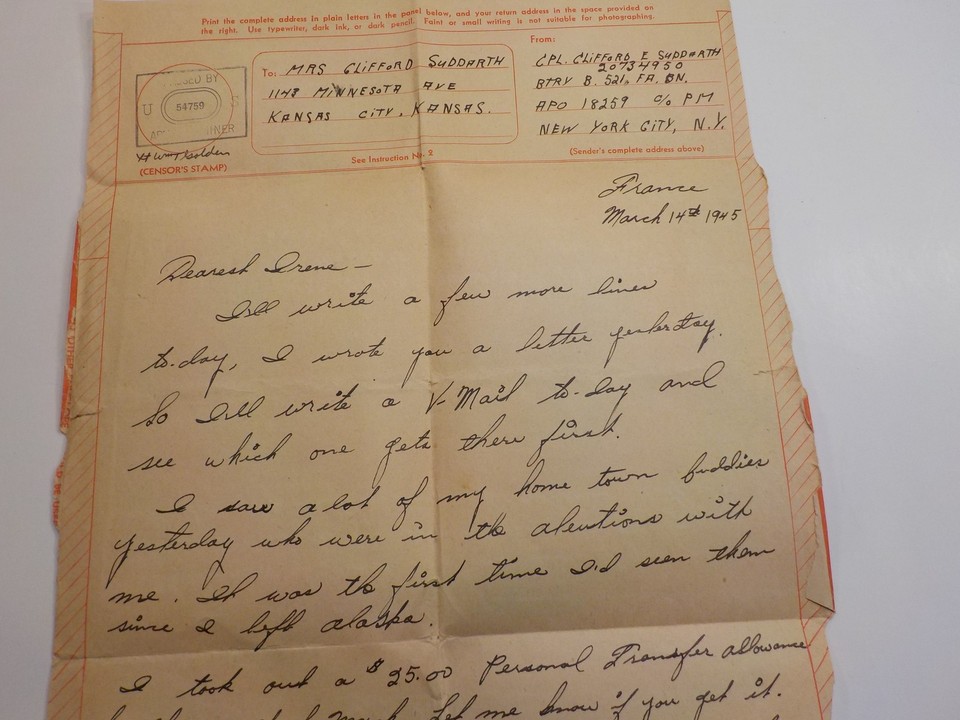 Print the complete address in plain letters in the panel below, and your return address in the space provided on
the right. Use typewriter, dark ink, or dark pencil. Faint or small writing is not suitable for photographing.
To: MRS CLIFFORD SUDDARTH
1148 MINNESOTA AVE
KANSAS CITY, KANSAS.
From:
CPL. CLIFFORD E SUDDARTH
20734950
BTRY B. 521 FA. BN.
APO 18259 c/o PM
NEW YORK CITY, N.Y.
(Sender's complete address above)
BY
U S
54759
(CENSOR'S STAMP)
See Instruction No. 2
France
March 14th 1945
Dearest Irene —
I'll write a few more lines
to-day, I wrote you a letter yesterday.
So I'll write a V-Mail to-day and
see which one gets there first.
I saw a lot of my home town buddies
yesterday who were in the aleutions with
me. It was the first time I'd seen them
since I left alaska.
I took out a $25.00 Personal Transfer allowance
let me know if you get it.